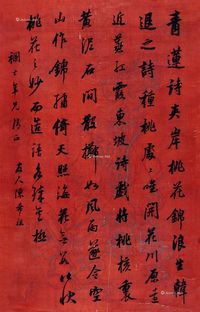 青蓮詩夾岸桃花錦浪生韓
退之詩種桃處處惟開花川原遠
近蒸紅霞東坡詩戲將桃核裹
黃泥石間散擲如風雨遂令空
山作錦繡倚天照海花無數狀
桃花之妙而造語各殊其極
友人陳希祖